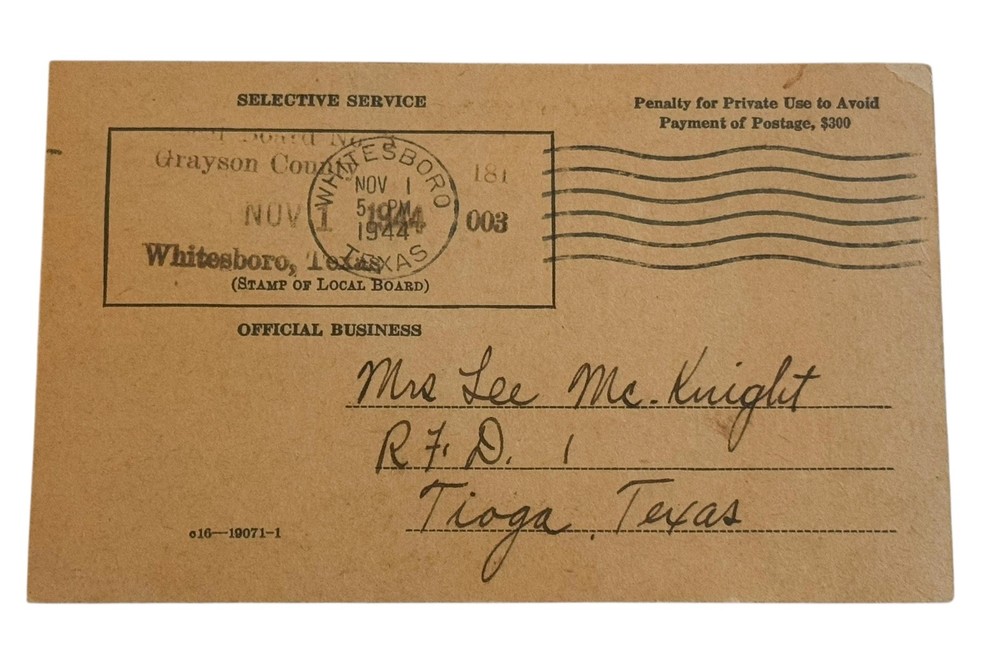 SELECTIVE SERVICE
Penalty for Private Use to Avoid
Payment of Postage, $300
Board No.
Grayson County
181
NOV 1 1944
003
Whitesboro, Texas
(STAMP OF LOCAL BOARD)
WHITESBORO
NOV 1
5 PM
1944
TEXAS
OFFICIAL BUSINESS
Mrs Lee Mc. Knight
R.F.D. 1
Tioga, Texas
c16—19071-1